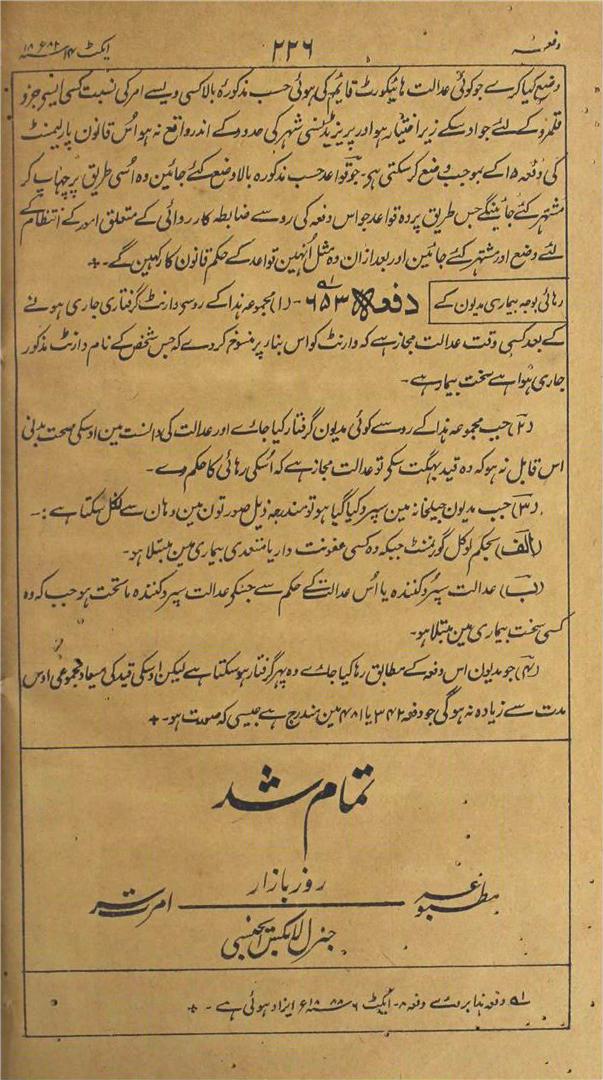 دفعہ ۲۲۶ ایکٹ ۱۴ سنہ ۱۸۸۲ع
وضع کیا کرے جو کوئی عدالت ہائیکورٹ قایم کی ہوئی حسب مذکورہ بالا کسی ویسے امر کی نسبت کسی ایسی جزو
قلمرو کے لئے جو اوسکے زیر اختیار ہو اور پریزیڈنسی شہر کی حدود کے اندر واقع نہ ہو اُس قانون پارلیمنٹ
کی دفعہ ۱۵ کے بموجب وضع کرسکتی ہی۔ جو قواعد حسب مذکورہ بالا وضع کئے جائین وہ اُسی طریق پر چھاپ کر
مشتہر کئے جائینگے جس طریق پر وہ قواعد جو اس دفعہ کی رو سے ضابطہ کارروائی کے متعلق امور کے انتظام کے
لئے وضع اور مشتہر کئے جائین اور بعد ازان وہ مثل اُنہین قواعد کے حکم قانون کا رکہین گے۔+
رہائی بوجہ بیماری مدیون کے دفعہ ۶۵۳ - (۱) مجموعہ ہذا کے روسے وارنٹ گرفتاری جاری ہونے
کے بعد کسی وقت عدالت مجاز ہے کہ وارنٹ کو اس بنا پر منسوخ کردے کہ جس شخص کے نام وارنٹ مذکور
جاری ہوا ہے سخت بیمار ہے۔
(۲) جب مجموعہ ہذا کے روسے کوئی مدیون گرفتار کیا جاے اور عدالت کی دانست مین اوسکی صحت بدنی
اس قابل نہ ہو کہ وہ قید بھگت سکی تو عدالت مجاز ہے کہ اُسکی رہائی کا حکم دے۔
(۳) جب مدیون جیلخانہ مین سپرد کیا گیا ہو تو مندرجہ ذیل صورتون مین وہان سے نکل سکتا ہے:۔
(الف) بحکم لوکل گورنمنٹ جبکہ وہ کسی عفونت دار یا متعدی بیماری مین مبتلا ہو۔
(ب) عدالت سپرد کنندہ یا اُس عدالت کے حکم سے جسکی عدالت سپرد کنندہ ماتحت ہو جب کہ وہ
کسی سخت بیماری مین مبتلا ہو۔
(۴) جو مدیون اس دفعہ کے مطابق رہا کیا جاے وہ پہر گرفتار ہوسکتا ہے لیکن اوسکی قید کی میعاد مجموعی اوس
مدت سے زیادہ نہ ہوگی جو دفعہ ۳۴۲ یا ۴۸۱ مین مندرج ہے جیسی کہ صورت ہو۔+
تمام شد
مطبوعہ روز بازار امرتسر
جنرل لاکس ایجنسی
۱ دفعہ ہذا بروے دفعہ ۸۔ ایکٹ ۶ ۱۸۸۸ع ایزاد ہوئی ہے۔+